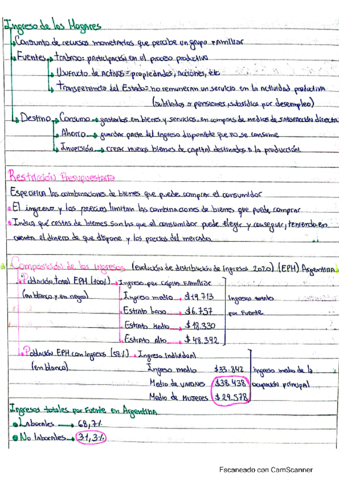 Ingreso de los Hogares
Conjunto de recursos monetarios que percibe un grupo familiar
Fuentes → trabajo: participación en el proceso productivo
Usufructo de activos = propiedades, acciones, etc
Transferencia del Estado: no remuneran un servicio en la actividad productiva
(subsidios o pensiones, subsidios por desempleo)
Destino → Consumo → gastarlos en bienes y servicios, en compras de medios de satisfacción directa
Ahorro → guardar parte del ingreso disponible que no se consume
Inversión → crear nuevos bienes de capital destinados a la producción
Restricción Presupuestaria
Especifica las combinaciones de bienes que puede comprar el consumidor
El ingreso y los precios limitan las combinaciones de bienes que puede comprar
Indica que cestas de bienes son las que el consumidor puede elegir y conseguir, teniendo en
cuenta el dinero de que dispone y los precios del mercado.
Composición de los ingresos (evolución de distribución de ingresos 2020) (EPH) Argentina
Población total EPH (100%) Ingreso per cápita familiar
(en blanco y en negro) Ingreso medio → $19.713 Ingresos totales
Estrato bajo → $6.757 por fuente
Estrato medio → $18.330
Estrato alto → $48.392
Población EPH con ingresos (58%) → Ingreso individual
(en blanco) Ingreso medio $33.842 Ingreso medio de la
Medio de varones $38.438 ocupación principal
Medio de mujeres $29.578
Ingresos totales por fuente en Argentina
Laborales → 68,7%
No laborales → 31,3%
Escaneado con CamScanner